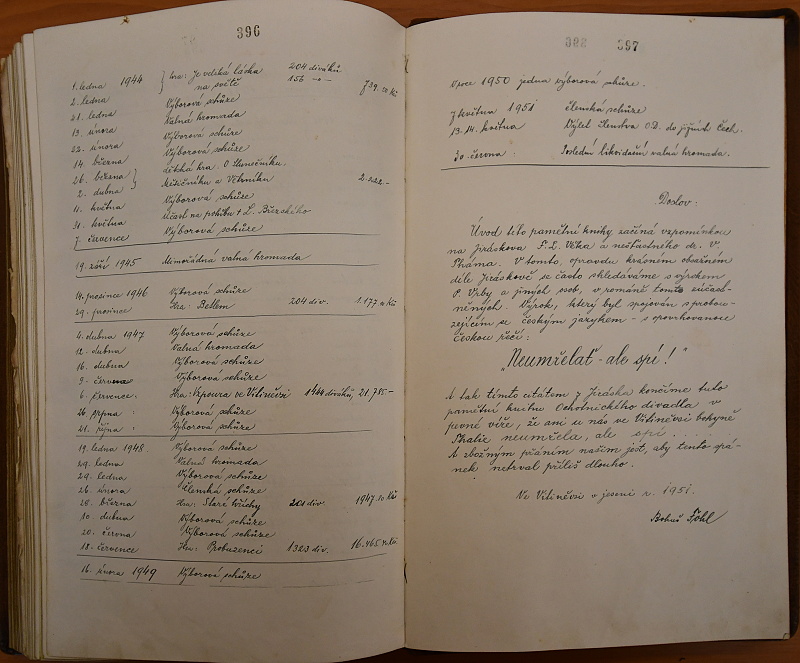 396
1. ledna 1944 hra: Je veliká láska 204 diváků
2. ledna na světě 156 -"- 739.50 Kč
21. ledna Výborová schůze
13. února Valná hromada
22. února Výborová schůze
14. března Výborová schůze
26. března dětská hra. O Slunečníku,
2. dubna Měsíčníku a Větrníku 2.222.-
11. května Výborová schůze
31. května Účast na pohřbu † L. Březského
7. července Výborová schůze
19. září 1945 Mimořádná valná hromada
14. prosince 1946 Výborová schůze
29. prosince Hra: Betlem 204 div. 1.177.10 Kčs
4. dubna 1947 Výborová schůze
12. dubna Valná hromada
16. dubna Výborová schůze
9. června Výborová schůze
6. července. Hra: Vzpoura ve Vitiněvsi 1449 diváků, 21.785-
26. srpna : Výborová schůze
21. října : Výborová schůze
19. ledna 1948. Výborová schůze
29. ledna Valná hromada
29. ledna Výborová schůze
26. února Členská schůze
28. března Hra: Staré hříchy 201 div 1947.10 Kčs
10. dubna Výborová schůze
20. června Výborová schůze
18. července Hra: Probuzenci 1323 div. 16.465.40 Kčs
16. února 1949 Výborová schůze
397
V roce 1950 jedna výborová schůze.
7 května 1951 členská schůze
13. 14. května Výlet členstva O.D. do jižních Čech.
30 června. Poslední likvidační valná hromada.
Doslov:
Úvod této pamětní knihy začíná vzpomínkou
na Jiráskova F. L. Věka a nešťastného dr. V.
Tháma. V tomto, opravdu krásném obsažném
díle Jiráskově se často shledáváme s výrokem
P. Vrby a jiných osob, v románě tomto zúčast-
něných. Výrok, který byl spojován s probou-
zejícím se českým jazykem - s opovrhovanou
českou řečí:
"Neumřelať - ale spí!"
A tak tímto citátem z Jiráska končíme tuto
pamětní knihu Ochotnického divadla v
pevné víře, že ani u nás ve Vitiněvsi bohyně
Thalie neumřela, ale spí ....
A zbožným přáním naším jest, aby tento spá-
nek netrval příliš dlouho.
Ve Vitiněvsi v jeseni r. 1951.
Bohuš Töhl